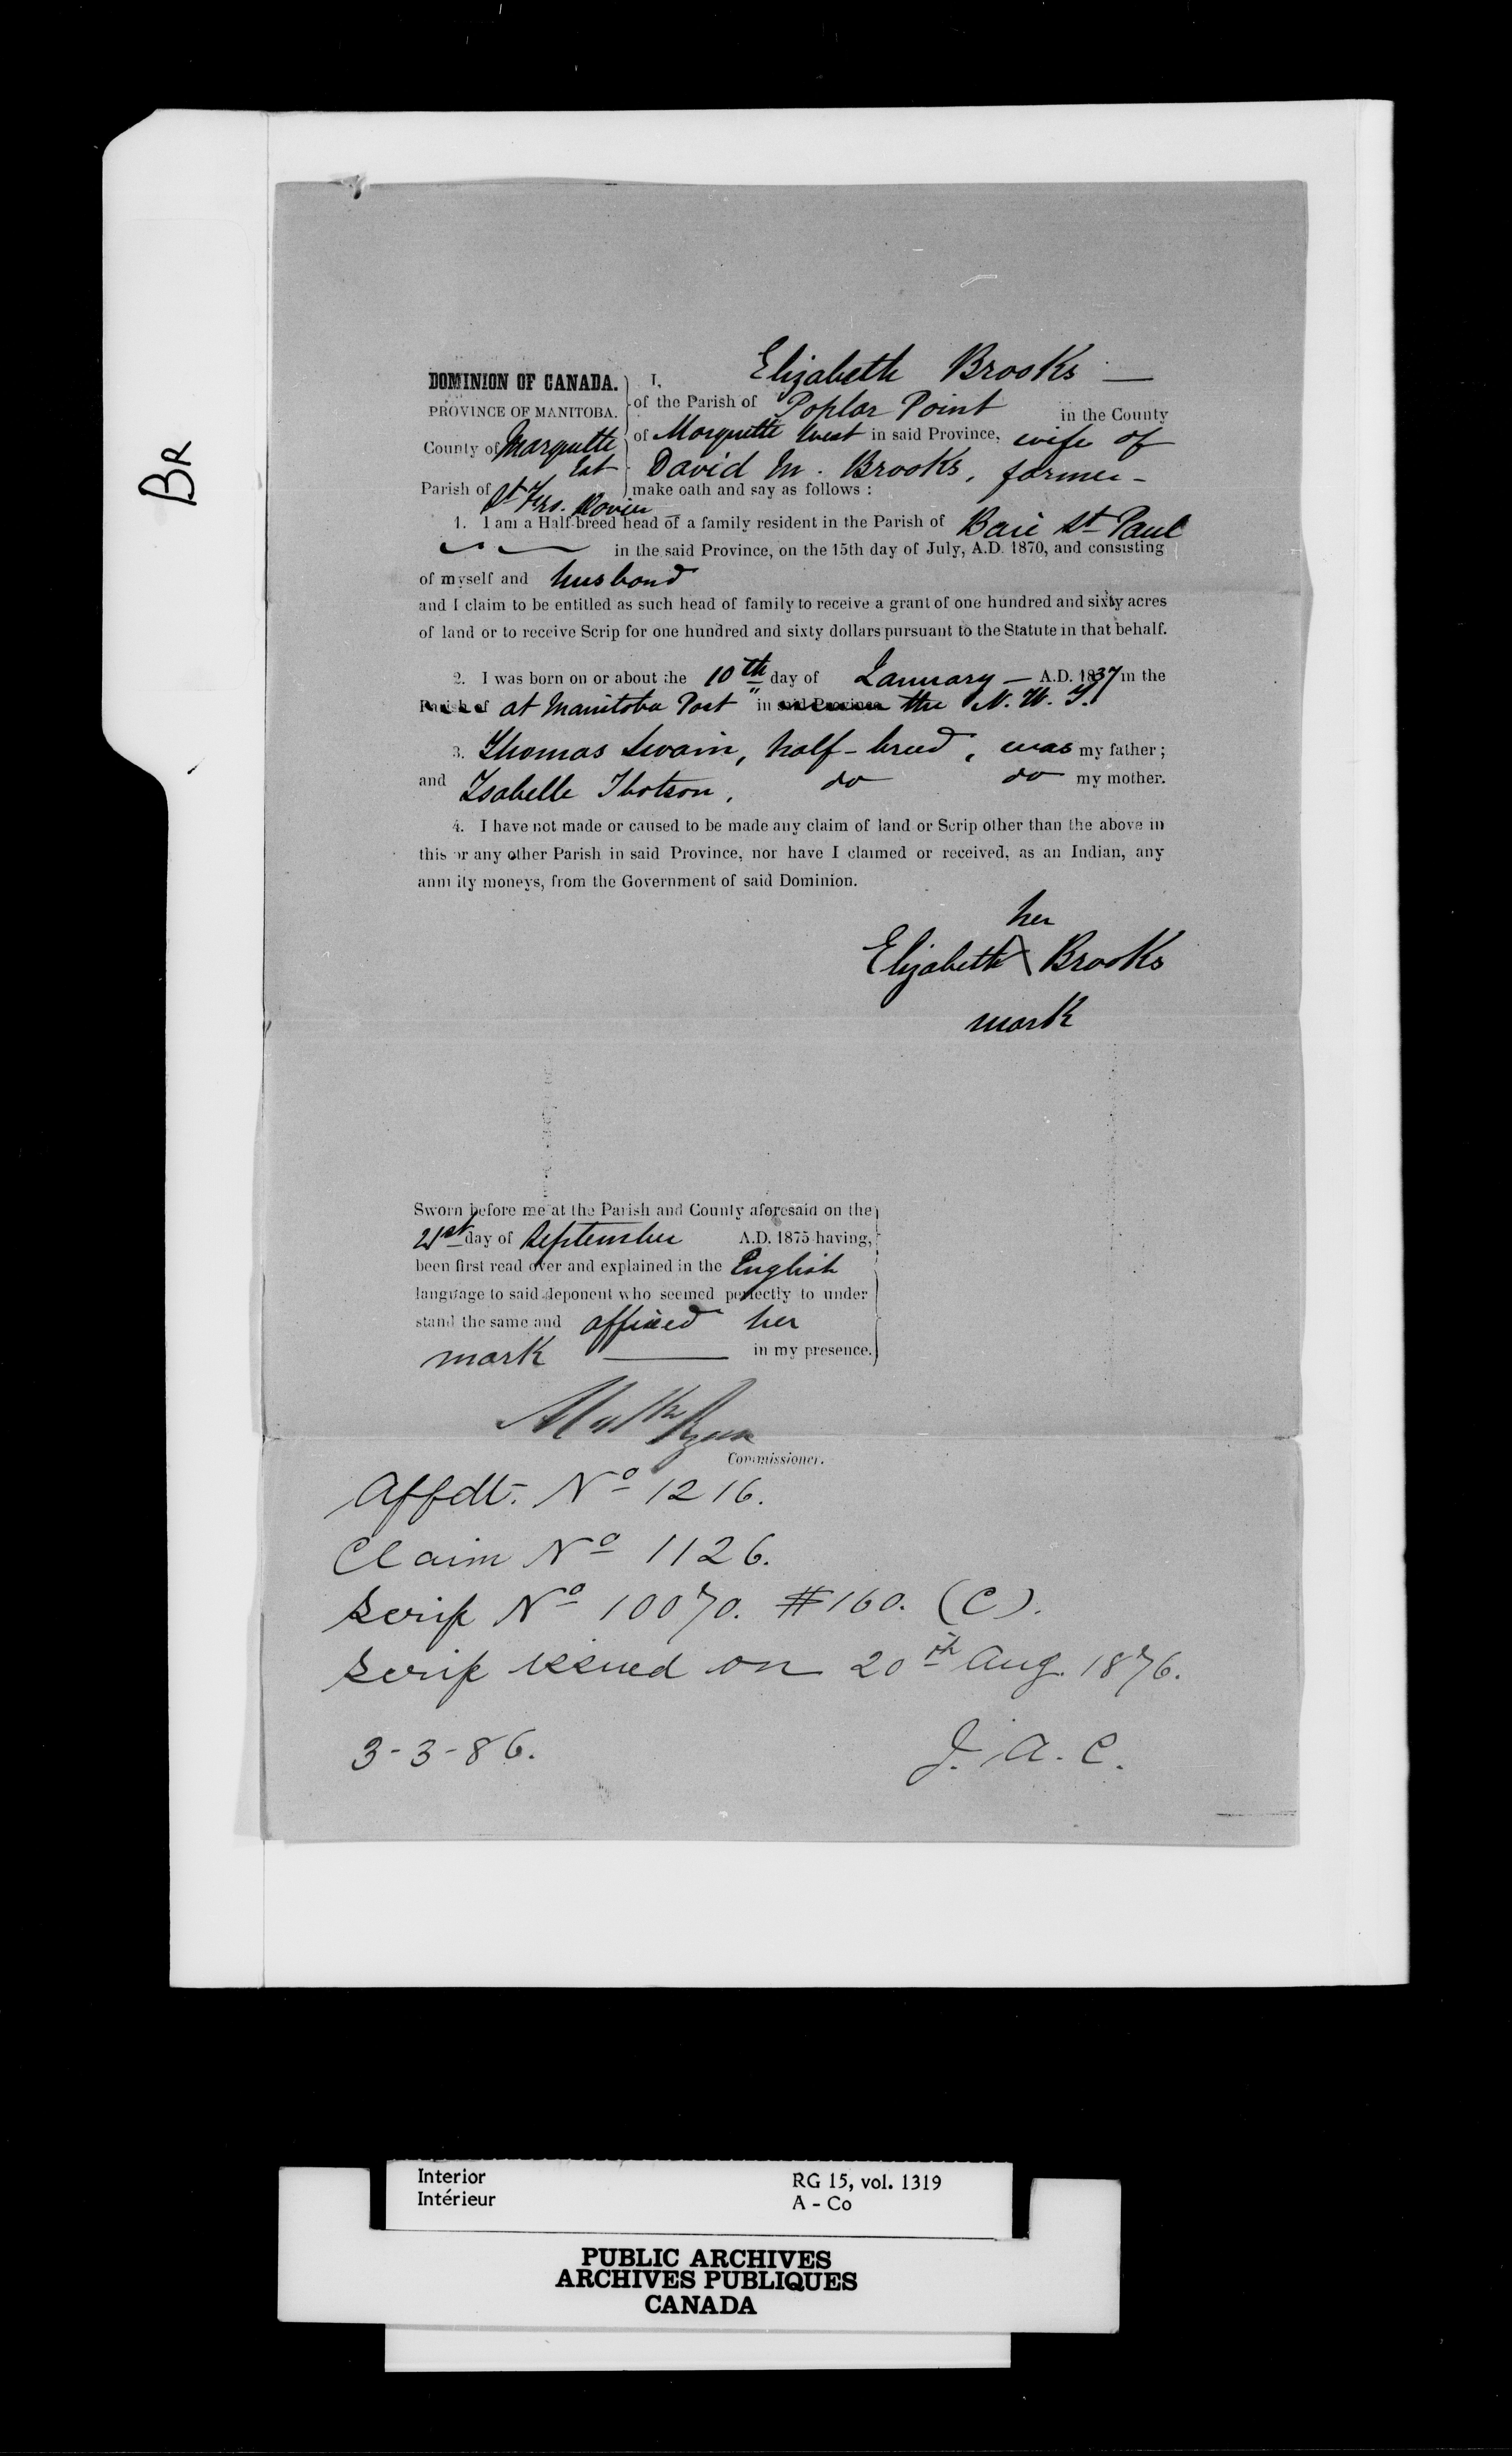 BR
Elizabeth Brooks —
DOMINION OF CANADA. I,
PROVINCE OF MANITOBA. of the Parish of Poplar Point in the County
County of Marquette Est of Marquette West in said Province, wife of
David M. Brooks, farmer -
Parish of St Frs. Xavier make oath and say as follows :
1. I am a Half-breed head of a family resident in the Parish of Baie St Paul
in the said Province, on the 15th day of July, A.D. 1870, and consisting
of myself and husband
and I claim to be entitled as such head of family to receive a grant of one hundred and sixty acres
of land or to receive Scrip for one hundred and sixty dollars pursuant to the Statute in that behalf.
2. I was born on or about the 10th day of January — A.D. 1837 in the
Parish of at Manitoba Post " in said Province the N. W. T.
3. Thomas Swain, half-breed, was my father ;
and Isabelle Ibotson, do do my mother.
4. I have not made or caused to be made any claim of land or Scrip other than the above in
this or any other Parish in said Province, nor have I claimed or received, as an Indian, any
annuity moneys, from the Government of said Dominion.
her
Elizabeth X Brooks
mark
Sworn before me at the Parish and County aforesaid on the
21st day of September A.D. 1875 having,
been first read over and explained in the English
language to said deponent who seemed perfectly to under
stand the same and affixed her
mark — in my presence.
Matth Ryan
Commissioner.
Affdt. No 1216.
Claim No 1126.
Scrip No 10070. $160. (C).
Scrip issued on 20th Aug. 1876.
3-3-86. J. A. C.
Interior RG 15, vol. 1319
Intérieur A - Co
PUBLIC ARCHIVES
ARCHIVES PUBLIQUES
CANADA